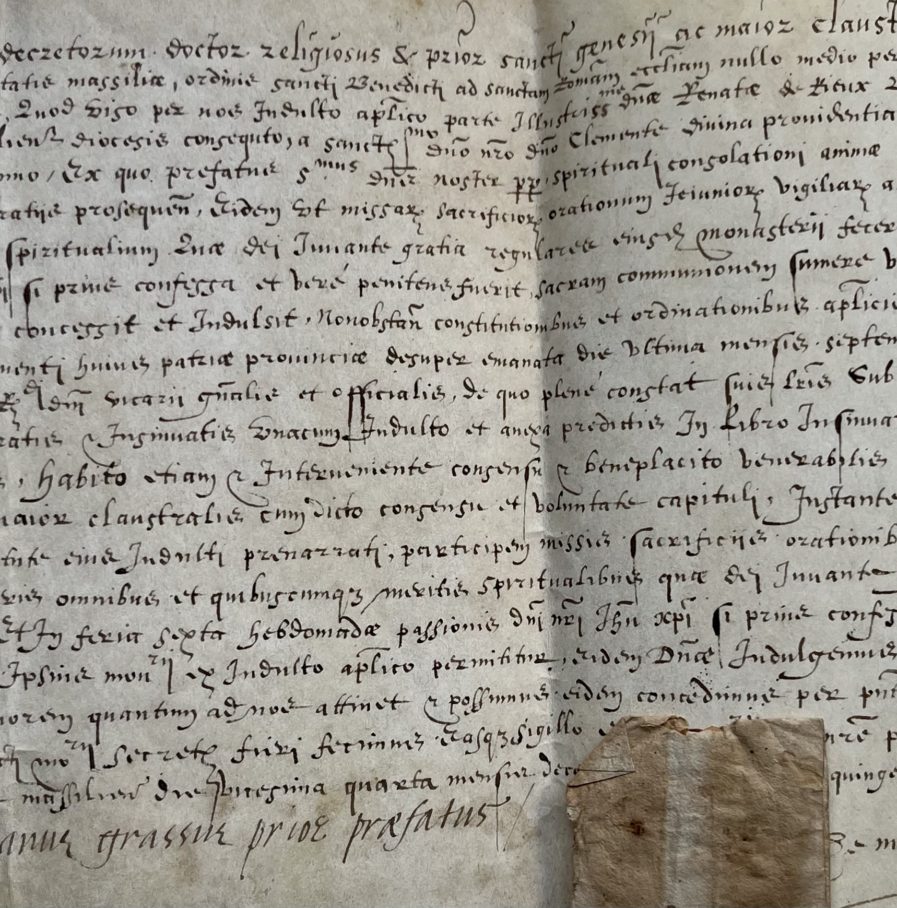 decretorum doctor religiosus & prior sancti genesii ac maior claust
tatis massiliæ, ordinis sancti Benedicti ad sanctam Romãm eccliam nullo medio per
Quod vigo per nos Indulto aplico parte Illustrissme dñæ Renatæ de Rieux
diocesis consequto, a sanctissmo dño nro dño Clemente divina providentia
Ex quo prefatus smus dñs noster pp, spirituali consolationi animæ
prosequen, Eidem vt missarz sacrificiorz orationum Ieiuniorz vigiliarz a
spiritualium Quæ dei Iuuante gratia regulares eiusd monasterii fecer
si prius confessa et veré penitens fuerit, sacram communionem sumere v
concessit et Indulsit, Nonobstañ constitutionibus et ordinationibus aplicis
menti huius patriæ prouinciæ desuper emanata die vltima mensis septem
dñi vicarii gñalis et officialis, de quo plené constat suis lris sub
Insinuatis vnacum Indulto et anexa predictis In Libro Insinua
habito etiam & Interueniente consensu & beneplacito venerabilis
maior claustralis cum dicto consensu et voluntate capituli, Instante
tute eius Indulti prenarrati, participem missis sacrificiis orationib
omnibus et quibuscumqz meritis spiritualibus quæ dei Iuuante
Et In feria sexta hebdomadæ passionis dñi nri Ihu xpi si prius confes
Ipsius monrii ex Indulto aplico permititur, eidem Dñæ Indulgemus
morem quantum ad nos attinet & possumus eidem concedimus per pñt
morii secretz fieri fecimus Easqz sigillo
massilie die vicesima quarta mensis dece quinge
anus grassus prior præfatus